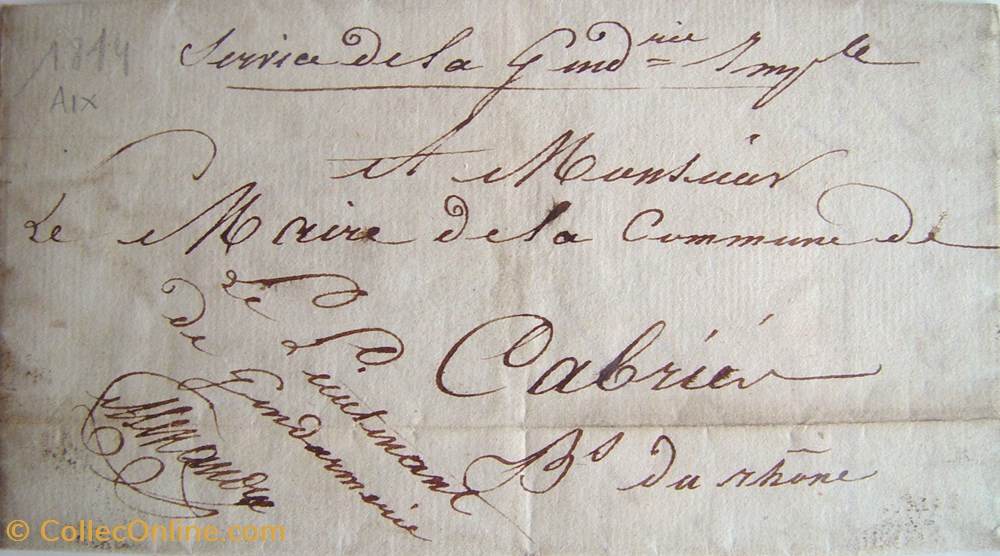 1814
Aix
Service de la Gend.rie Imp.le
A Monsieur
Le Maire de la Commune de
Cabriés
Bs du rhône
Le Lieutenant
de Gendarmerie
© CollecOnline.com